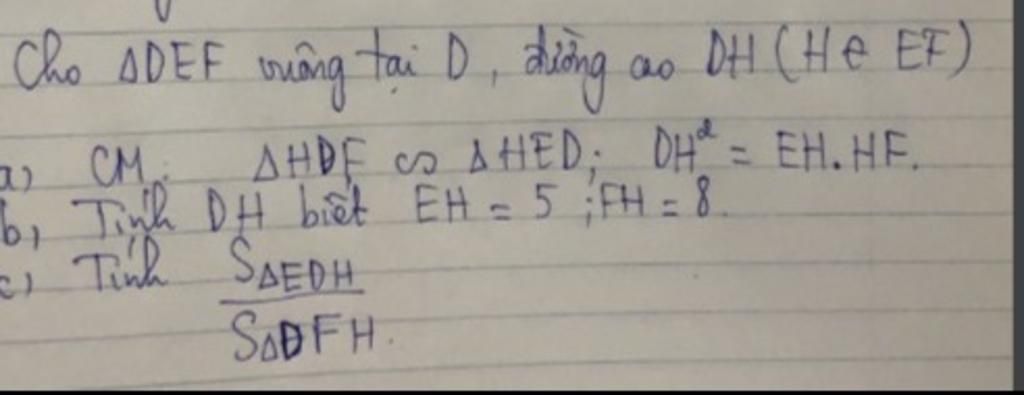 Cho ΔDEF vuông tại D, đường cao DH (H ∈ EF)
a) CM: ΔHDF ∽ ΔHED; DH² = EH.HF.
b, Tính DH biết EH = 5 ; FH = 8.
c) Tính SΔEDH
SΔDFH.